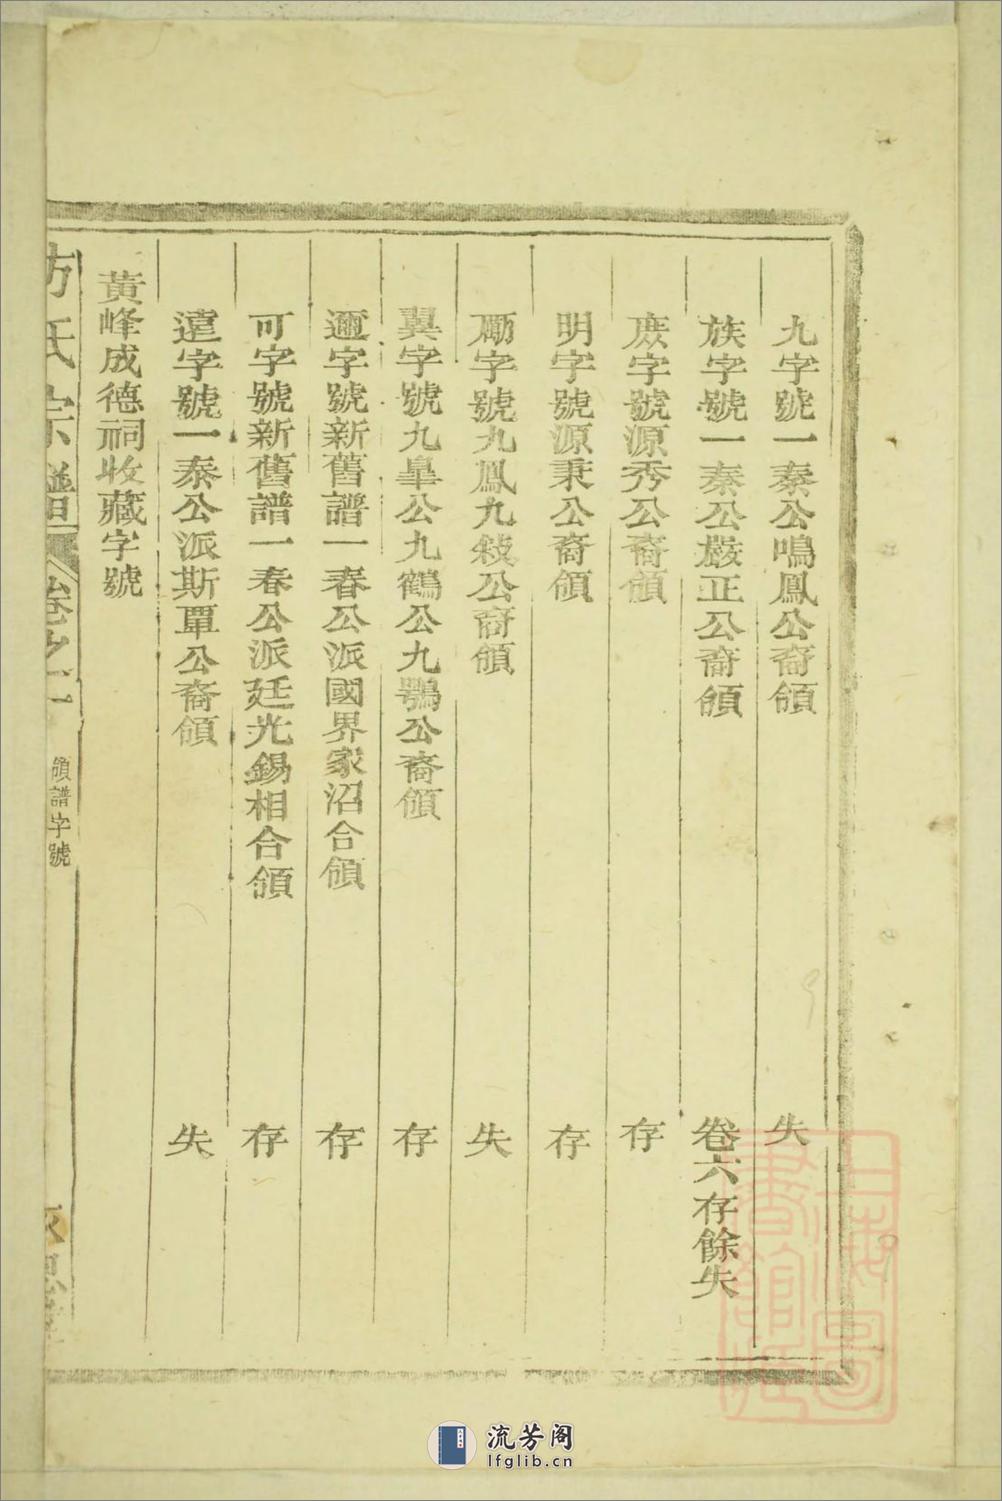 九字號一秦公鳴鳳公裔領 失
族字號一秦公嚴正公裔領 卷六存餘失
庶字號源秀公裔領 存
明字號源秉公裔領 存
勵字號九鳳九敍公裔領 失
翼字號九皐公九鶴公九鶚公裔領 存
邇字號新舊譜一春公派國界家沼合領 存
可字號新舊譜一春公派廷光錫相合領 存
遠字號一泰公派斯覃公裔領 失
黃峰成德祠收藏字號
方氏宗譜 卷之 領譜字號
上海圖書館藏
流芳阁
lfglib.cn